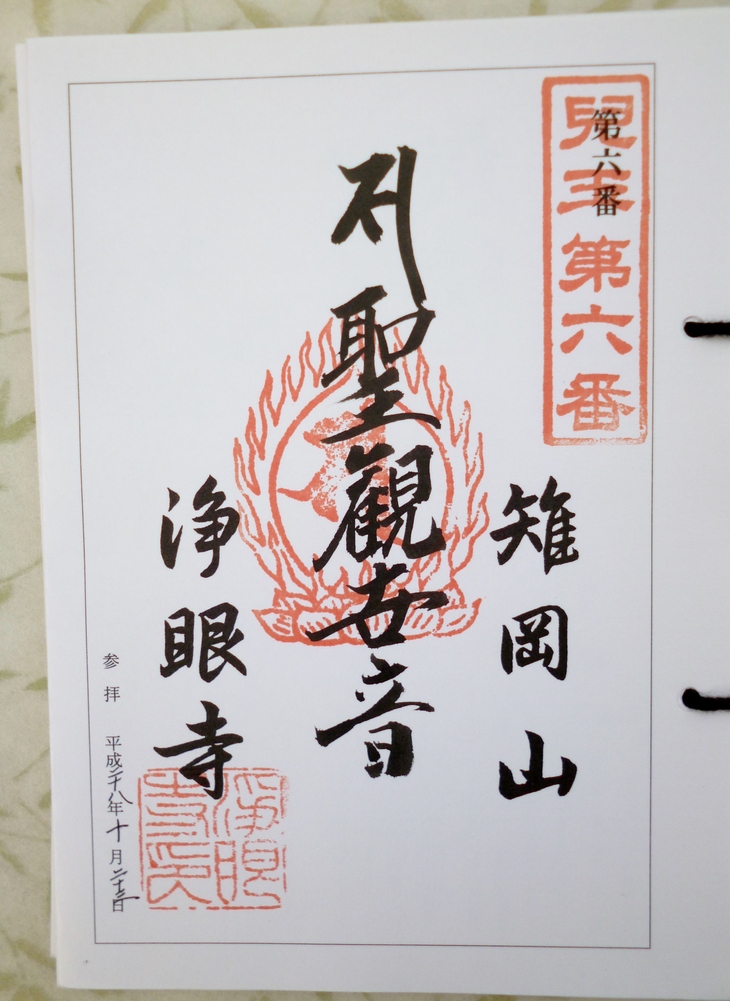 第六番
兒玉第六番
雉岡山
聖観世音
浄眼寺
淨眼寺印
参拝 平成二十八年十月二十三日